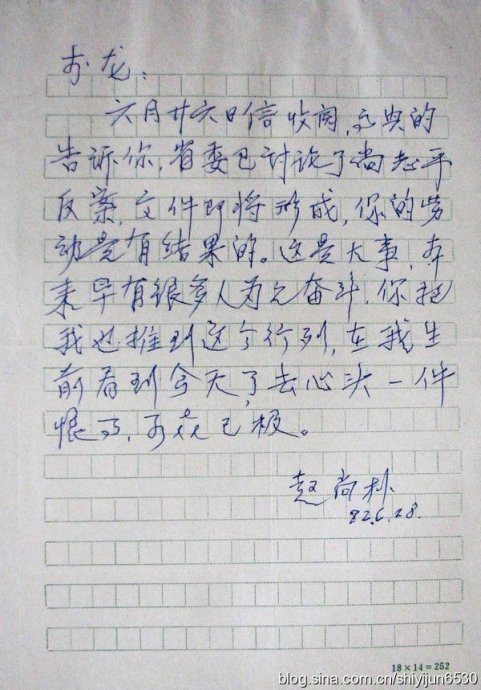 龙：
六月廿六日信收阅，高兴的
告诉你，省委已讨论了尚志平
反案，文件即将形成，你的劳
动是有结果的。这是大事，本
来早有很多人为之奋斗．你把
我也推到这个行列，在我生
前看到今天了，去心头一件
恨事，已极。
赵尚朴
82.6.28.
18×14=252
blog.sina.com.cn/shiyijun6530